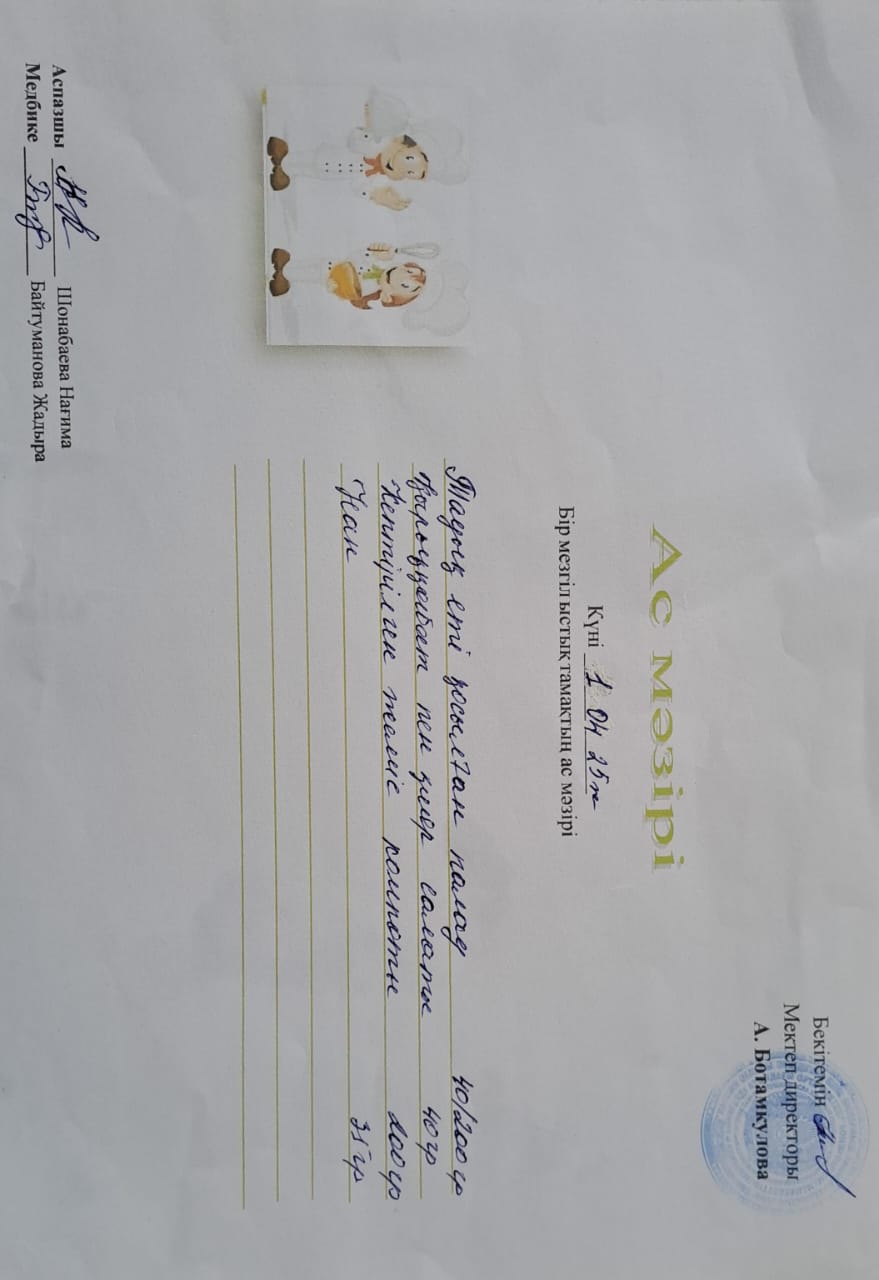 Бекітемін
Мектеп директоры
А. Ботамкулова
Ас мәзірі
Күні 1 04 25ж
Бір мезгіл ыстық тамақтың ас мәзірі
Тауық еті қосылған палау 40/200 гр
Қырыққабат пен қияр салаты 40 гр
Кептірілген жеміс компоты 200 гр
Нан 35 гр
Аспазшы Шонабаева Нағима
Медбике Байтуманова Жадыра